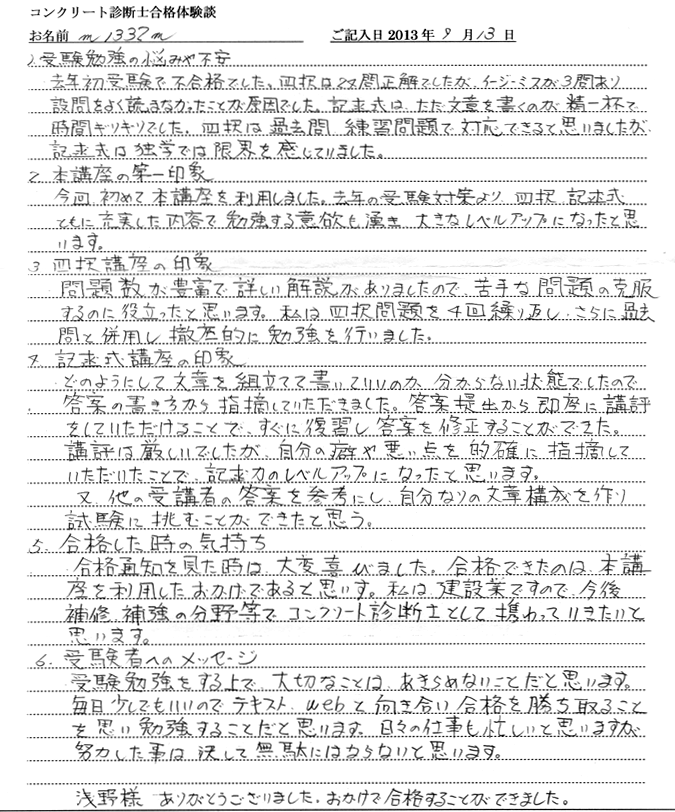 コンクリート診断士合格体験談
お名前 m1332m ご記入日2013年9月13日
1.受験勉強の悩みや不安
去年初受験で不合格でした。四択は28問正解でしたが、イージーミスが3問あり
設問をよく読まなかったことが原因でした。記述式は、ただ文章を書くのが精一杯で
時間ギリギリでした。四択は過去問、練習問題で対応できると思いましたが、
記述式は独学では限界を感じていました。
2.本講座の第一印象
今回、初めて本講座を利用しました。去年の受験対策より、四択、記述式
ともに充実した内容で勉強する意欲も湧き、大きなレベルアップになったと思
います。
3.四択講座の印象
問題数が豊富で詳しい解説がありましたので、苦手な問題の克服
するのに役立ったと思います。私は四択問題を4回繰り返し、さらに過去
問と併用し、撤底的に勉強を行いました。
4.記述式講座の印象
どのようにして文章を組立てて書いていいのか、分からない状態でしたので
答案の書き方から指摘していただきました。答案提出から即座に講評
をしていただけることで、すぐに復習し答案を修正することができた。
講評は厳しいでしたが、自分の癖や悪い点を的確に指摘して
いただいたことで、記述力のレベルアップになったと思います。
又、他の受講者の答案を参考にし、自分なりの文章構成を作り
試験に挑むことができたと思う。
5.合格した時の気持ち
合格通知を見た時は、大変喜びました。合格できたのは、本講
座を利用したおかげであると思います。私は、建設業ですので、今後
補修、補強の分野等でコンクリート診断士として携わっていきたいと
思います。
6.受験者へのメッセージ
受験勉強をする上で、大切なことは、あきらめないことだと思います。
毎日少しでもいいのでテキスト、webと向き合い合格を勝ち取ること
を思い勉強することだと思います。日々の仕事も忙しいと思いますが、
努力した事は決して無駄にはならないと思います。
浅野様 ありがとうございました。おかげで合格することができました。